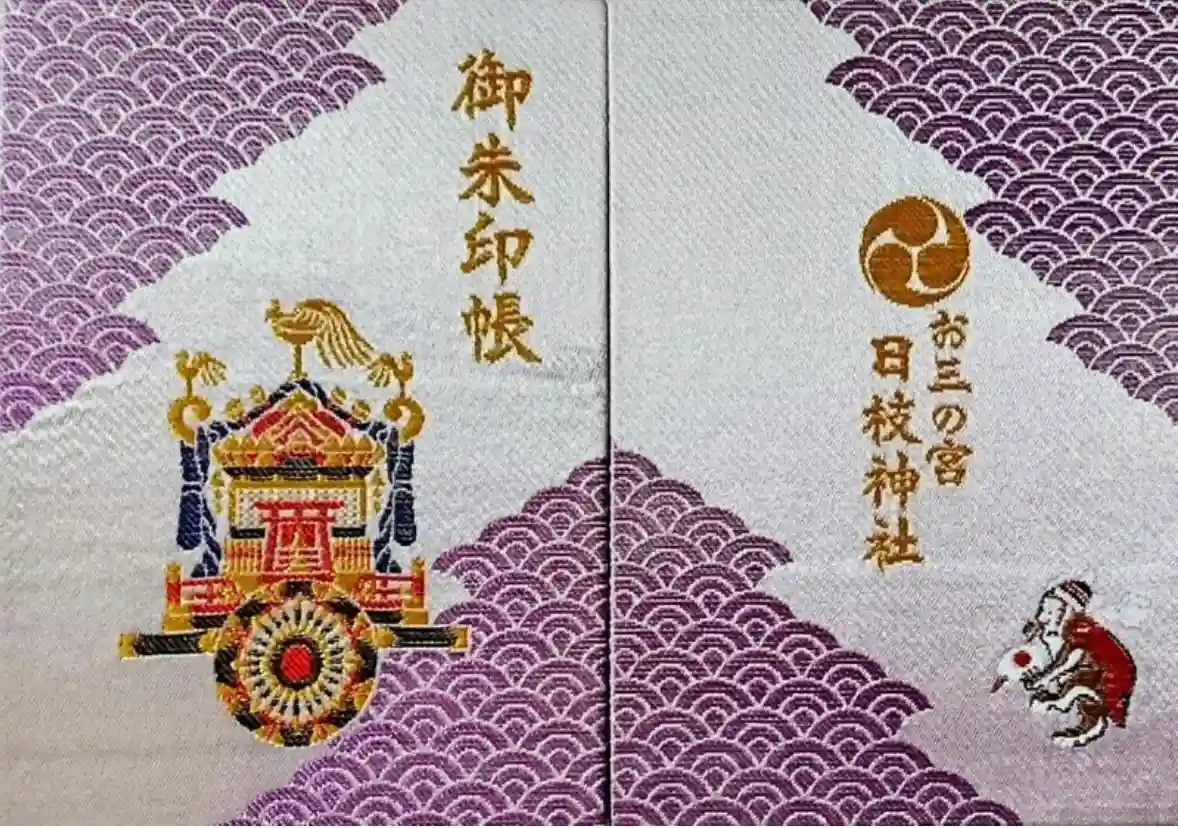 御朱印帳
お三の宮
日枝神社